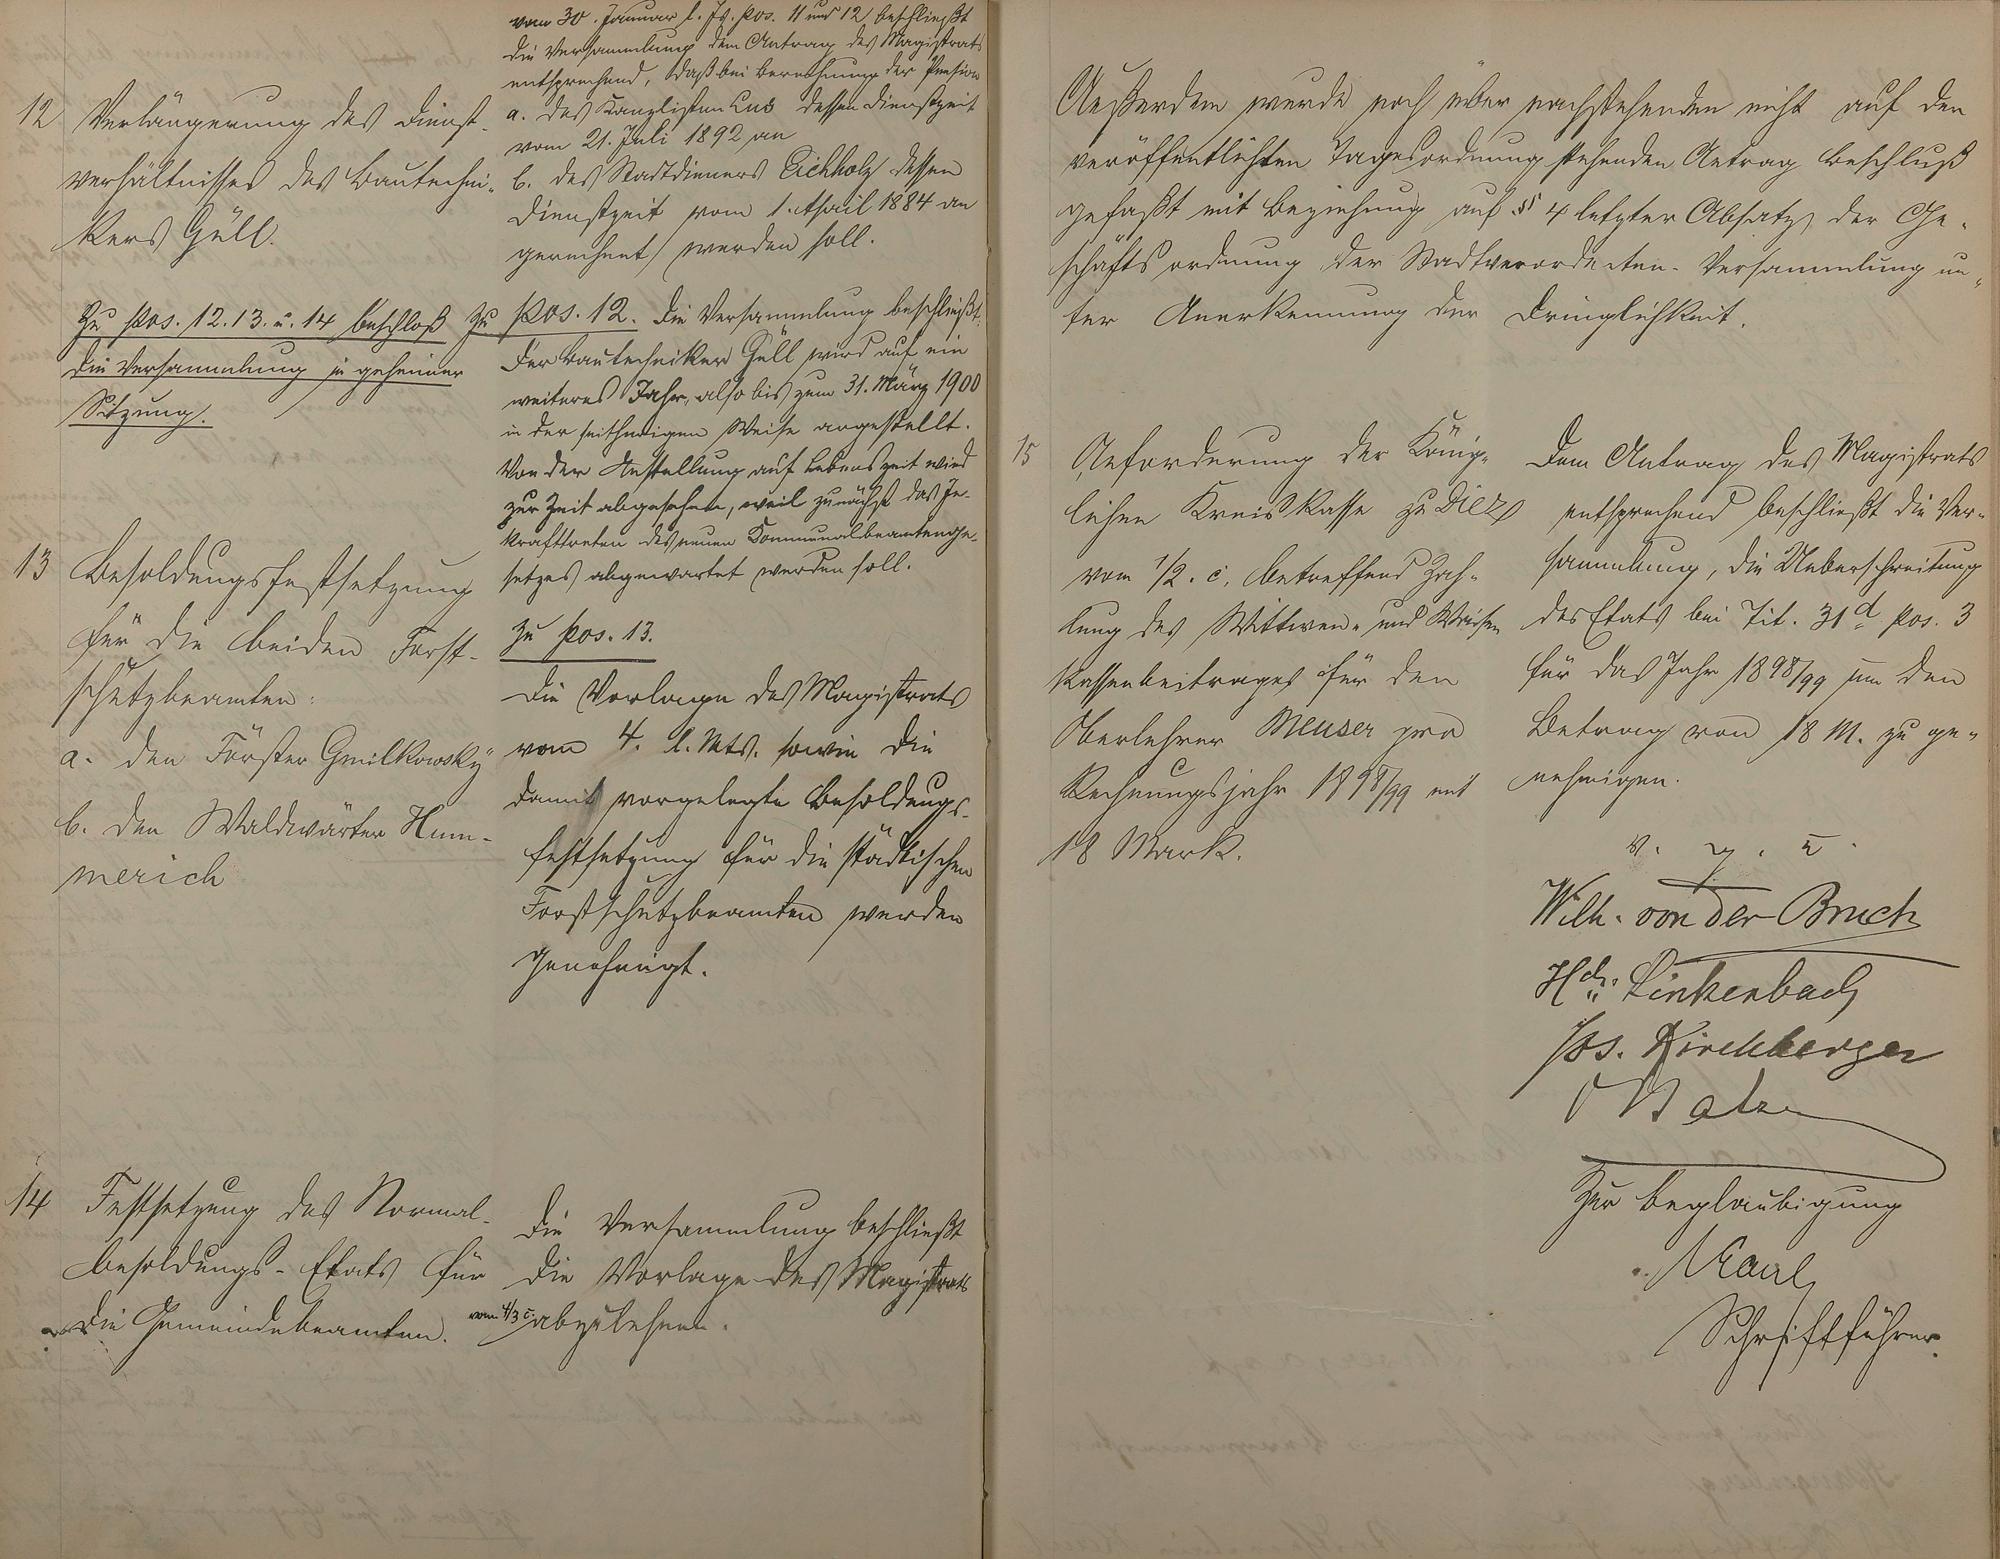 vom 30. Januar l. Js. pos. 11 und 12 beschließt
die Versammlung dem Antrag des Magistrats
entsprechend, daß bei Berechnung der Pension
a. des Kanzlisten Lus dessen Dienstzeit
vom 21. Juli 1892 an
b. des Stadtdieners Eichholz dessen
Dienstzeit vom 1. April 1884 an
gerechnet werden soll.
12 Verlängerung des Dienst-
verhältnisses des Bautechni-
kers Güll.
Zu pos. 12. 13. u. 14 beschloß
die Versammlung in geheimer
Sitzung.
Zu pos. 12. Die Versammlung beschließt:
Der Bautechniker Güll wird auf ein
weiteres Jahr, also bis zum 31. März 1900
in der seitherigen Weise angestellt.
Von der Anstellung auf Lebenszeit wird
zur Zeit abgesehen, weil zunächst das In-
krafttreten des neuen Communalbeamtenge-
setzes abgewartet werden soll.
13 Besoldungsfestsetzung
für die beiden Forst-
schutzbeamten:
a. den Förster Gmilkowsky
b. den Waldwärter Hum-
merich
Zu pos. 13.
Die Vorlage des Magistrats
vom 4. l. Mts. sowie die
damit vorgelegte Besoldungs-
festsetzung für die städtischen
Forstschutzbeamten werden
genehmigt.
14 Festsetzung des Normal-
besoldungs-Etats für
die Gemeindebeamten.
Die Versammlung beschließt
die Vorlage des Magistrats
vom 4/3 c. abzulehnen.
Außerdem wurde noch über nachstehenden nicht auf der
veröffentlichten Tagesordnung stehenden Antrag Beschluß
gefaßt mit Beziehung auf § 4 letzter Absatz der Ge-
schäftsordnung der Stadtverordneten-Versammlung un-
ter Anerkennung der Dringlichkeit.
15 Anforderung der König-
lichen Kreiskasse zu Diez
vom 1/2. c. betreffend Zah-
lung des Wittwen- und Waisen
kassenbeitrages für den
Oberlehrer Meuser pro
Rechnungsjahr 1898/99 mit
18 Mark.
Dem Antrag des Magistrats
entsprechend beschließt die Ver-
sammlung, die Ueberschreitung
des Etats bei Tit. 31d pos. 3
für das Jahr 1898/99 um den
Betrag von 18 M. zu ge-
nehmigen.
v. g. u.
Wilh. von der Bruch
Hch. Linkenbach
Jos. Kirchberger
Zur Beglaubigung
Kaul
Schriftführer.